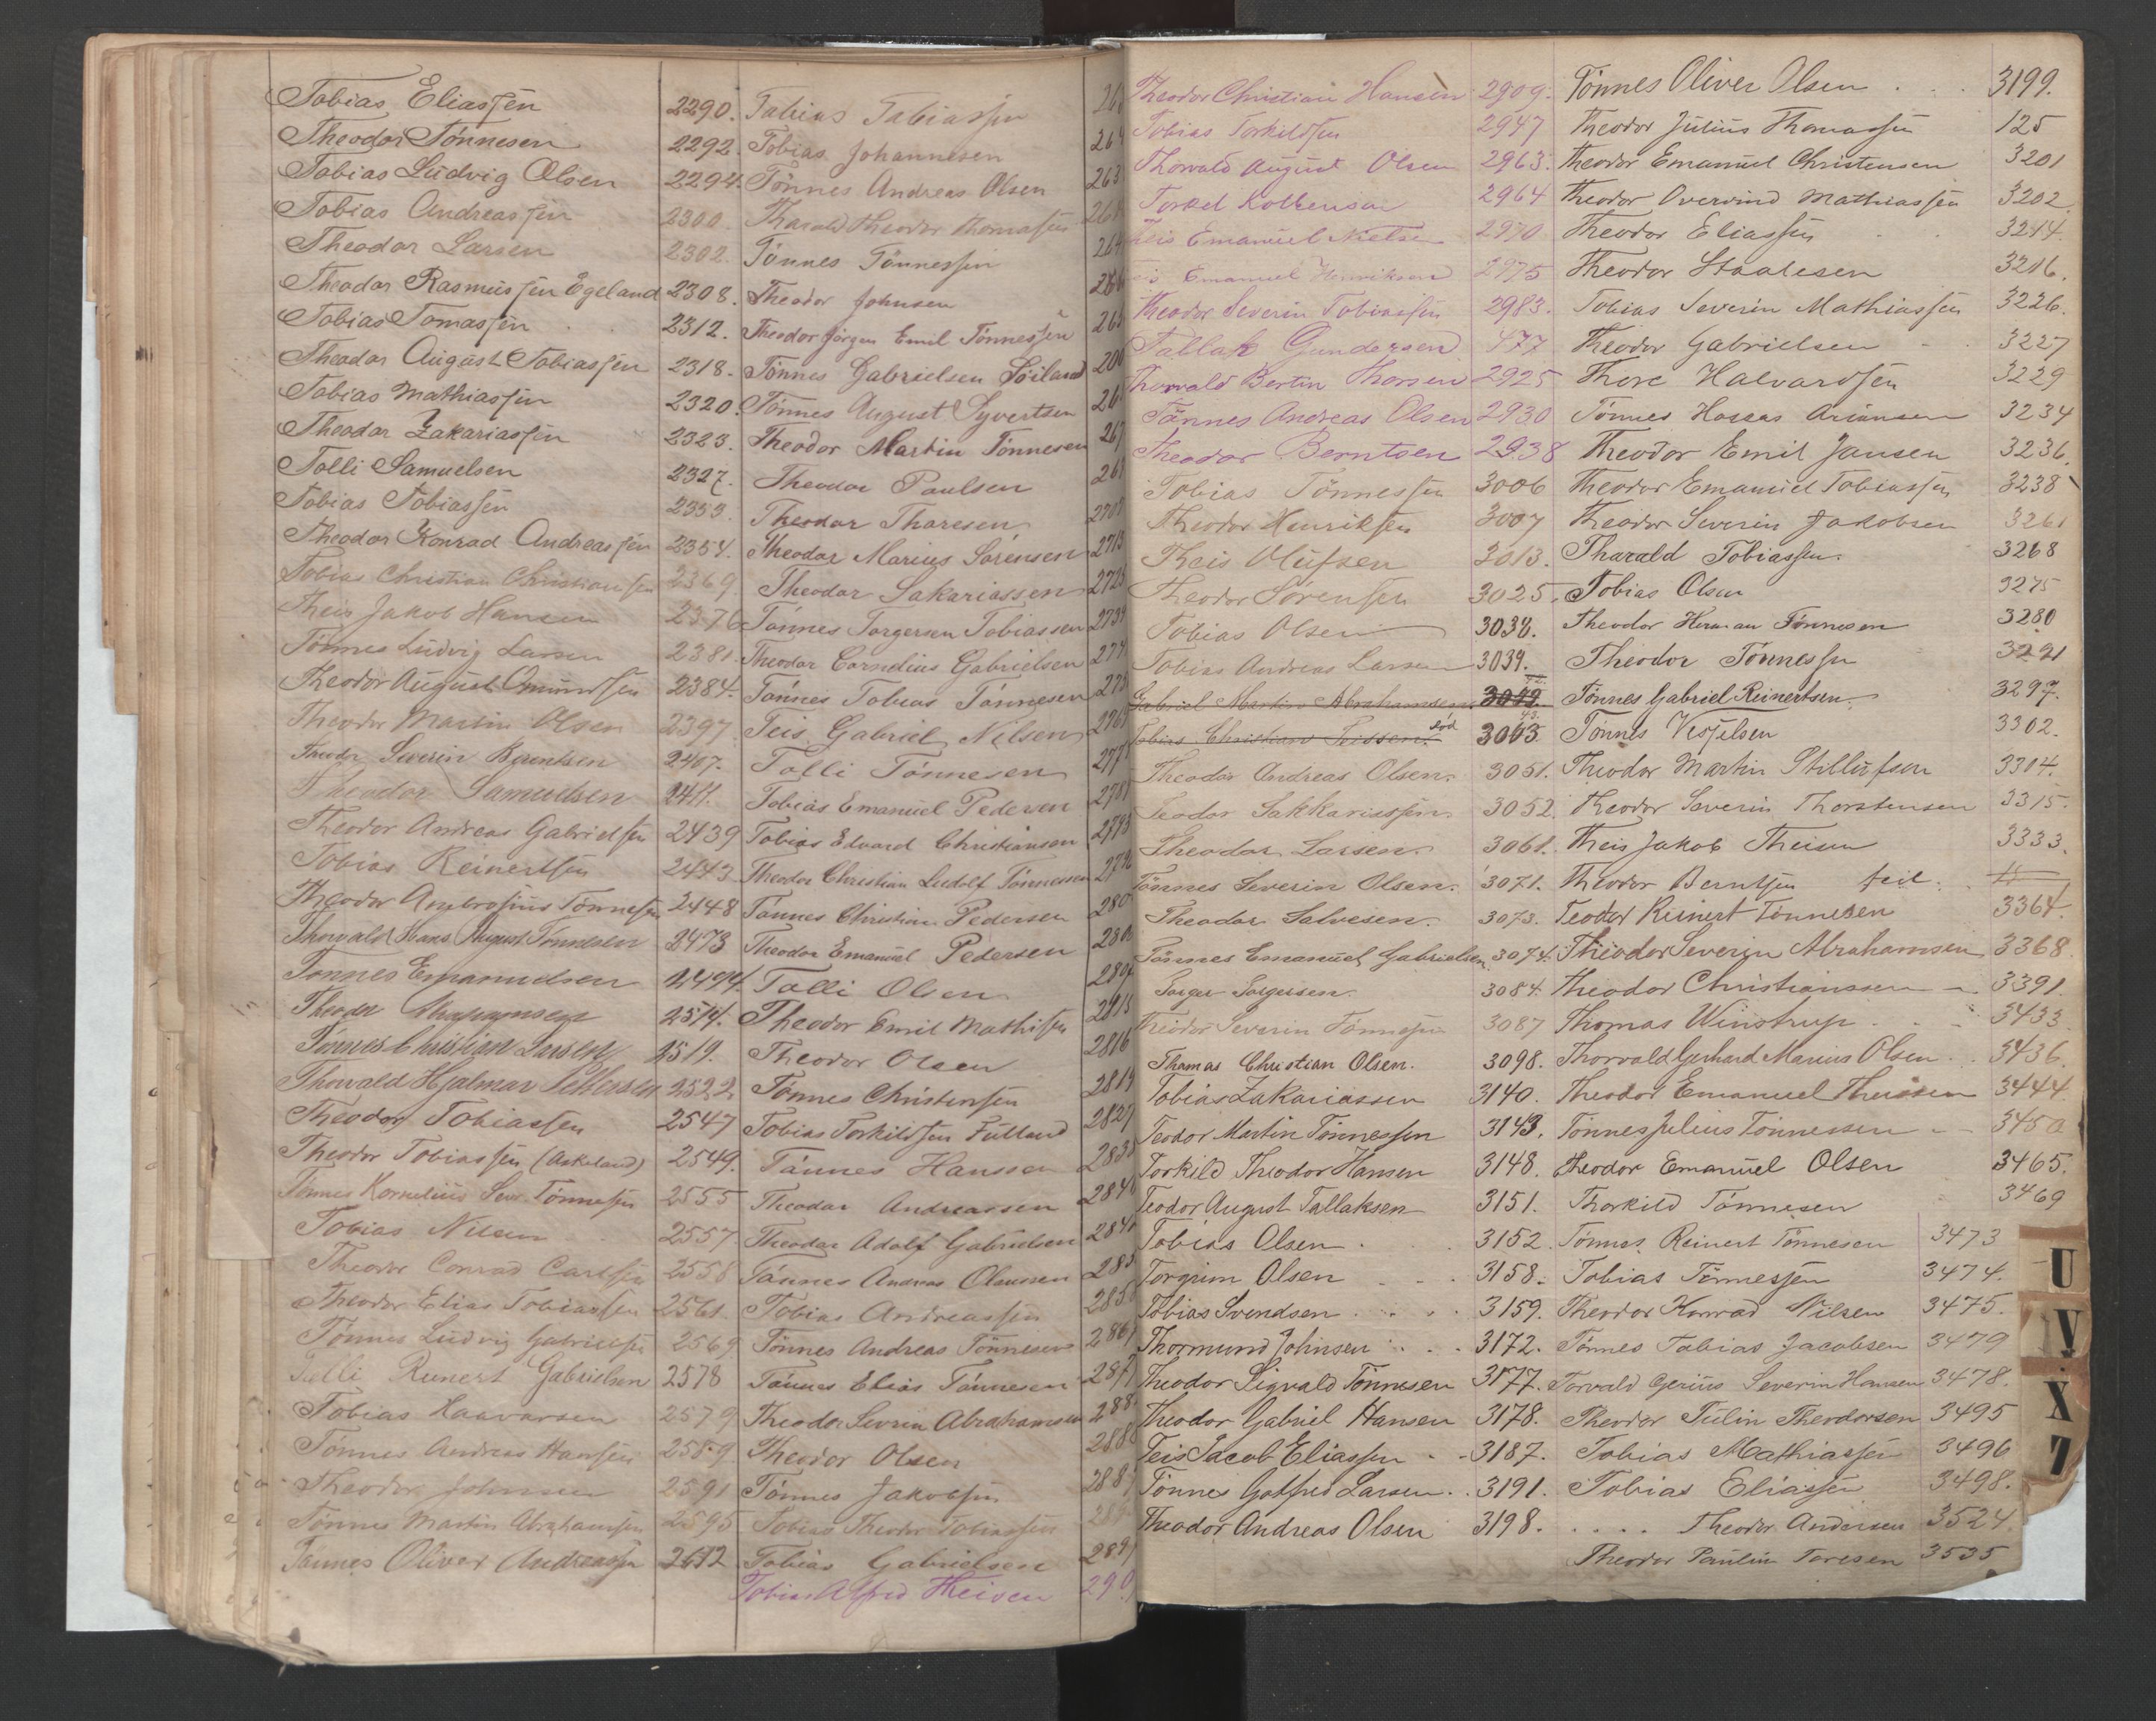 Tobias Eliassen 2290.
Theodor Tønnesen 2292.
Tobias Ludvig Olsen 2294.
Tobias Andreassen 2300.
Theodor Larsen 2302.
Theodor Rasmussen Egeland 2308.
Tobias Tomassen 2312.
Theodor August Tobiassen 2318.
Tobias Mathiassen 2320.
Theodor Zakariassen 2323.
Tolli Samuelsen 2327.
Tobias Tobiassen 2353.
Theodor Konrad Andreassen 2354.
Tobias Christian Christiansen 2369
Theis Jakob Hansen 2376
Tønnes Ludvig Larsen 2381.
Theodor August Omundsen 2384.
Theodor Martin Olsen 2397
Theodor Severin Berentsen 2407.
Theodor Samuelsen 2411.
Theodor Andreas Gabrielsen 2439
Tobias Reinertsen 2443
Theodor Ambrosius Tønnesen 2448
Thorvald Hans August Tønnesen 2473
Tønnes Emanuelsen 2494.
Theodor 2514.
Tønnes Christian Larsen 2519.
Thorvald Hjalmar Pettersen 2522
Theodor Tobiassen 2547
Theodor Tobiassen (Askeland) 2549.
Tønnes Kornelius Sev. Tønnesen 2555
Tobias Nilsen 2557
Theodor Conrad Carlsen 2558
Theodor Elias Tobiassen 2561.
Tønnes Ludvig Gabrielsen 2569
Tolli Reinert Gabrielsen 2578
Tobias Haavorsen 2579
Tønnes Andreas Hansen 2589
Theodor Johnsen 2591
Tønnes Martin Abrahamsen 2595
Tønnes Oliver Andreassen 2612
Tobias Tobiassen 26
Tobias Johannesen 264
Tønnes Andreas Olsen 263
Tharald Theodor Thomassen 26
Tønnes Tønnessen 264
Theodor Johnsen 26
Theodor Jörgen Emil Tønnessen 265
Tønnes Gabrielsen Söiland 266
Tønnes August Syvertsen 26
Theodor Martin Tønnesen 267
Theodor Paulsen 269
Theodor Tharesen 2707
Theodor Marius Sørensen 2713
Theodor Sakariassen 2725
Tønnes Torgersen Tobiassen 2734
Theodor Cornelius Gabrielsen 274
Tønnes Tobias Tønnesen 275
Teis Gabriel Nilsen 2763
Tolli Tønnesen 277
Tobias Emanuel Pedersen 278
Tobias Edvard Christiansen 2793
Theodor Christian Ludolf Tønnessen 279
Tønnes Christian Pedersen 280
Theodor Emanuel Pedersen 280
Tolli Olsen 280
Theodor Emil Mathisen 2815
Theodor Olsen 2816
Tønnes Christensen 2819
Tobias Torkildsen Futland 2827
Tønnes Hanssen 2838
Theodor Andreassen 2846
Theodor Adolf Gabrielsen 284
Tønnes Andreas Olaussen 285
Tobias Andreassen 2858
Tønnes Andreas Tønnesen 286
Tønnes Elias Tønnesen 287
Theodor Sevrin Abrahamsen 288
Theodor Olsen 2888
Tønnes Jakobsen 288
Tobias Theodor Tobiassen 289
Tobias Gabrielsen 289
Tobias Alfred Theisen 290
Theodor Christian Hansen 2909.
Tobias Torkildsen 2947
Thorvald August Olsen 2963.
Torkel Kolbenson 2964
Teis Emanuel Nielsen 2970
Emanuel Henriksen 2975
Theodor Severin Tobiassen 2983.
Tallak Gundersen 477
Thorvald Bertin Thorsen 2925
Tønnes Andreas Olsen 2930
Theodor Berntsen 2938
Tobias Tønnessen 3006
Theodor Henriksen 3007
Theis Olufsen 3013.
Theodor Sørensen 3025.
Tobias Olsen 3038.
Tobias Andreas Larsen 3039.
Gabriel Martin Abrahamsen 3042
Tobias Christian Teissen. død 3063
Theodor Andreas Olsen. 3051.
Teodor Sakkariassen. 3052.
Theodor Larsen. 3061.
Tönnes Severin Olsen. 3071.
Theodor Salvesen. 3073.
Tönnes Emanuel Gabrielsen. 3074.
Torger Torgersen. 3084.
Theodor Severin Tønnesen 3087
Thomas Christian Olsen. 3098.
Tobias Zakariassen 3140.
Teodor Martin Tönnessen 3143.
Torkild Theodor Hansen 3148.
Teodor August Tallaksen 3151.
Tobias Olsen . . 3152.
Torgrim Olsen . . . 3158.
Tobias Svendsen . . . . 3159.
Thormund Johnsen . . . 3172.
Theodor Sigvald Tönnesen 3177.
Theodor Gabriel Hansen 3178.
Teis Jacob Eliassen . . 3187.
Tönnes Gotfred Larsen . . 3191.
Theodor Andreas Olsen 3198.
Tönnes Oliver Olsen . . . 3199.
Theodor Julius Thomassen 125
Theodor Emanuel Christensen 3201
Theodor Overvind Mathiassen 3202
Theodor Eliassen . . 3214.
Theodor Staalesen 3216.
Tobias Severin Mathiassen 3226.
Theodor Gabrielsen . . 3227
Thore Halvardsen 3229
Tønnes Hassas Ariansen 3234
Theodor Emil Jansen 3236.
Theodor Emanuel Tobiassen 3238
Theodor Severin Jakobsen 3261
Tharald Tobiassen. 3268
Tobias Olsen 3275
Theodor Herman Tønnesen 3280
Theodor Tønnessen 3291
Tønnes Gabriel Reinertsen. 3297.
Tønnes Vesselsen 3302.
Theodor Martin Stillufsen 3304.
Theodor Severin Thorstensen 3315.
Theis Jakob Theisen 3333.
Theodor Berntsen feil.
Teodor Reinert Tønnesen 3364.
Theodor Severin Abrahamsen 3368
Theodor Christianssen 3391.
Thomas Winstrup . . . 3433
Thorvald Gerhard Marius Olsen . . 3436
Theodor Emanuel Theissen 3444.
Tönnes Julius Tönnessen 3450
Theodor Emanuel Olsen 3465.
Thorkild Tønnesen 3469
Tønnes Reinert Tønnesen 3473
Tobias Tønnessen 3474.
Theodor Konrad Nilsen 3475.
Tønnes Tobias Jacobsen 3479
Torvald Gerius Severin Hansen 3478.
Theodor Tulin Theodorsen 3495
Tobias Mathiassen 3496
Tobias Eliassen 3498.
. . . . Theodor Andersen 3524.
Theodor Paulin Toresen 3535
U
V
X